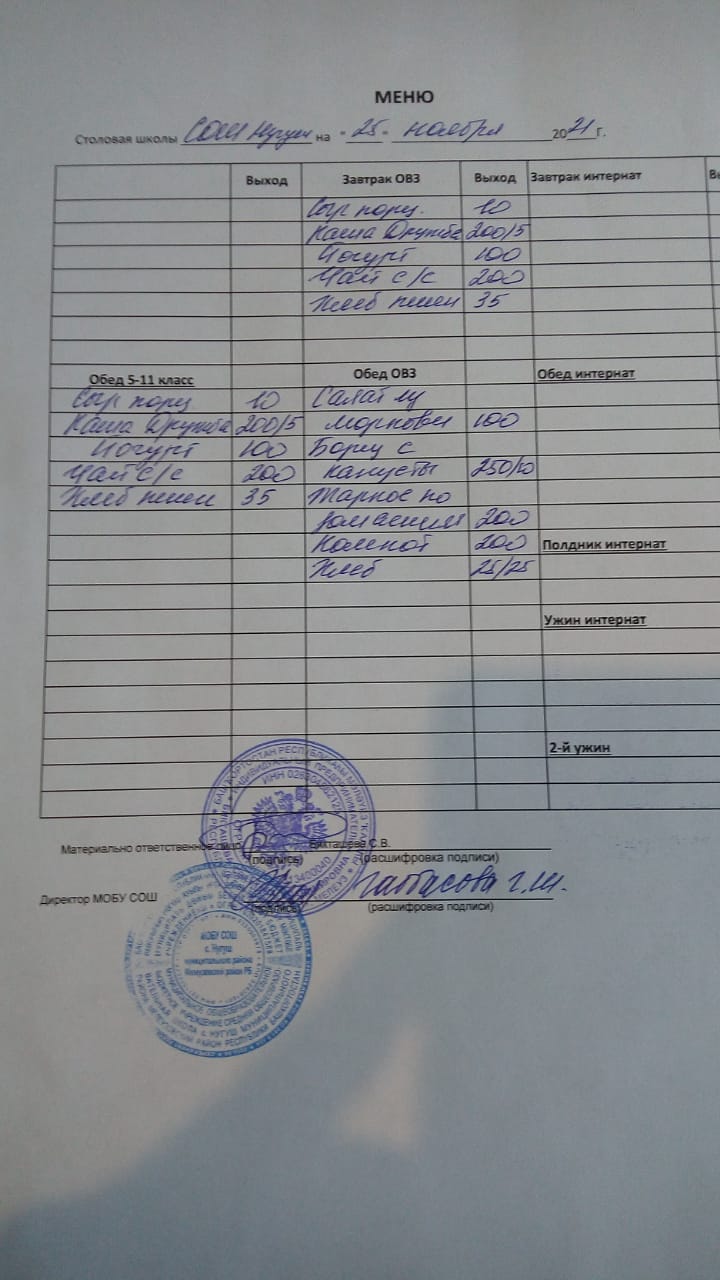 МЕНЮ
Столовая школы СОШ Нугуш на "25" ноября 2021 г.
Выход Завтрак ОВЗ Выход Завтрак интернат Вы
Сыр порц. 10
Каша Дружба 200/5
Йогурт 100
Чай с/с 200
Хлеб пшен 35
Обед 5-11 класс Обед ОВЗ Обед интернат
Сыр порц 10 Салат из
Каша Дружба 200/5 моркови 100
Йогурт 100 Борщ с
Чай с/с 200 капусты 250/10
Хлеб пшен 35 Жаркое по
домашнему 200
Компот 200 Полдник интернат
Хлеб 25/25
Ужин интернат
2-й ужин
Материально ответственное лицо Бикташева С.В.
(подпись) (расшифровка подписи)
Директор МОБУ СОШ Габбасова Г.Ш.
(подпись) (расшифровка подписи)
МОБУ СОШ
с. Нугуш
муниципального района
Мелеузовский район РБ